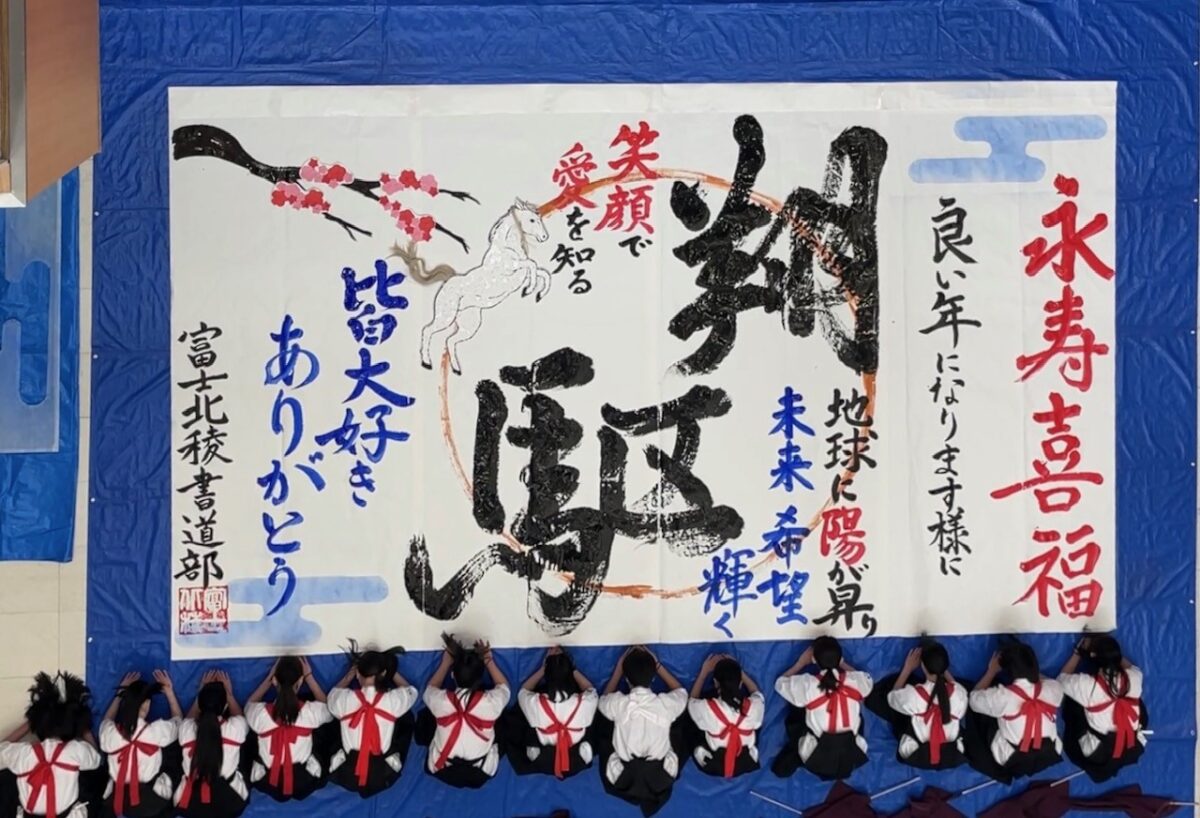 永寿喜福
良い年になります様に
翔
駆
地球に陽が昇り
未来 希望
輝く
笑顔で
愛を知る
皆大好き
ありがとう
富士北稜書道部